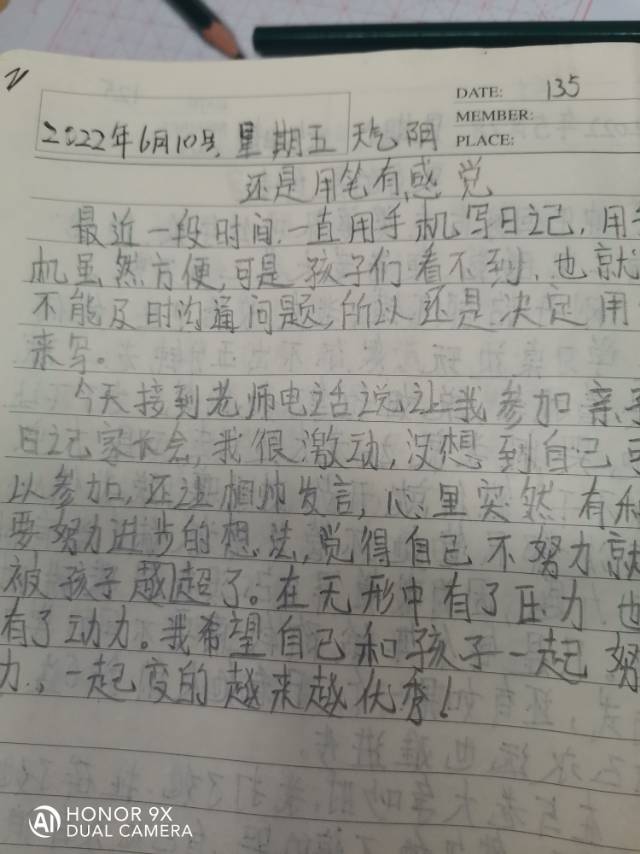 DATE: 135
MEMBER:
PLACE:
2022年6月10号,星期五 天气阴
还是用笔有感觉
最近一段时间,一直用手机写日记,用手
机虽然方便,可是孩子们看不到,也就
不能及时沟通问题,所以还是决定用
来写。
今天接到老师电话说让我参加亲子
日记家长会,我很激动,没想到自己可
以参加,还让相帅发言,心里突然有种
要努力进步的想法,觉得自己不努力就
被孩子越超了。在无形中有了压力也
有了动力。我希望自己和孩子一起努
力,一起变的越来越优秀!
HONOR 9X
DUAL CAMERA